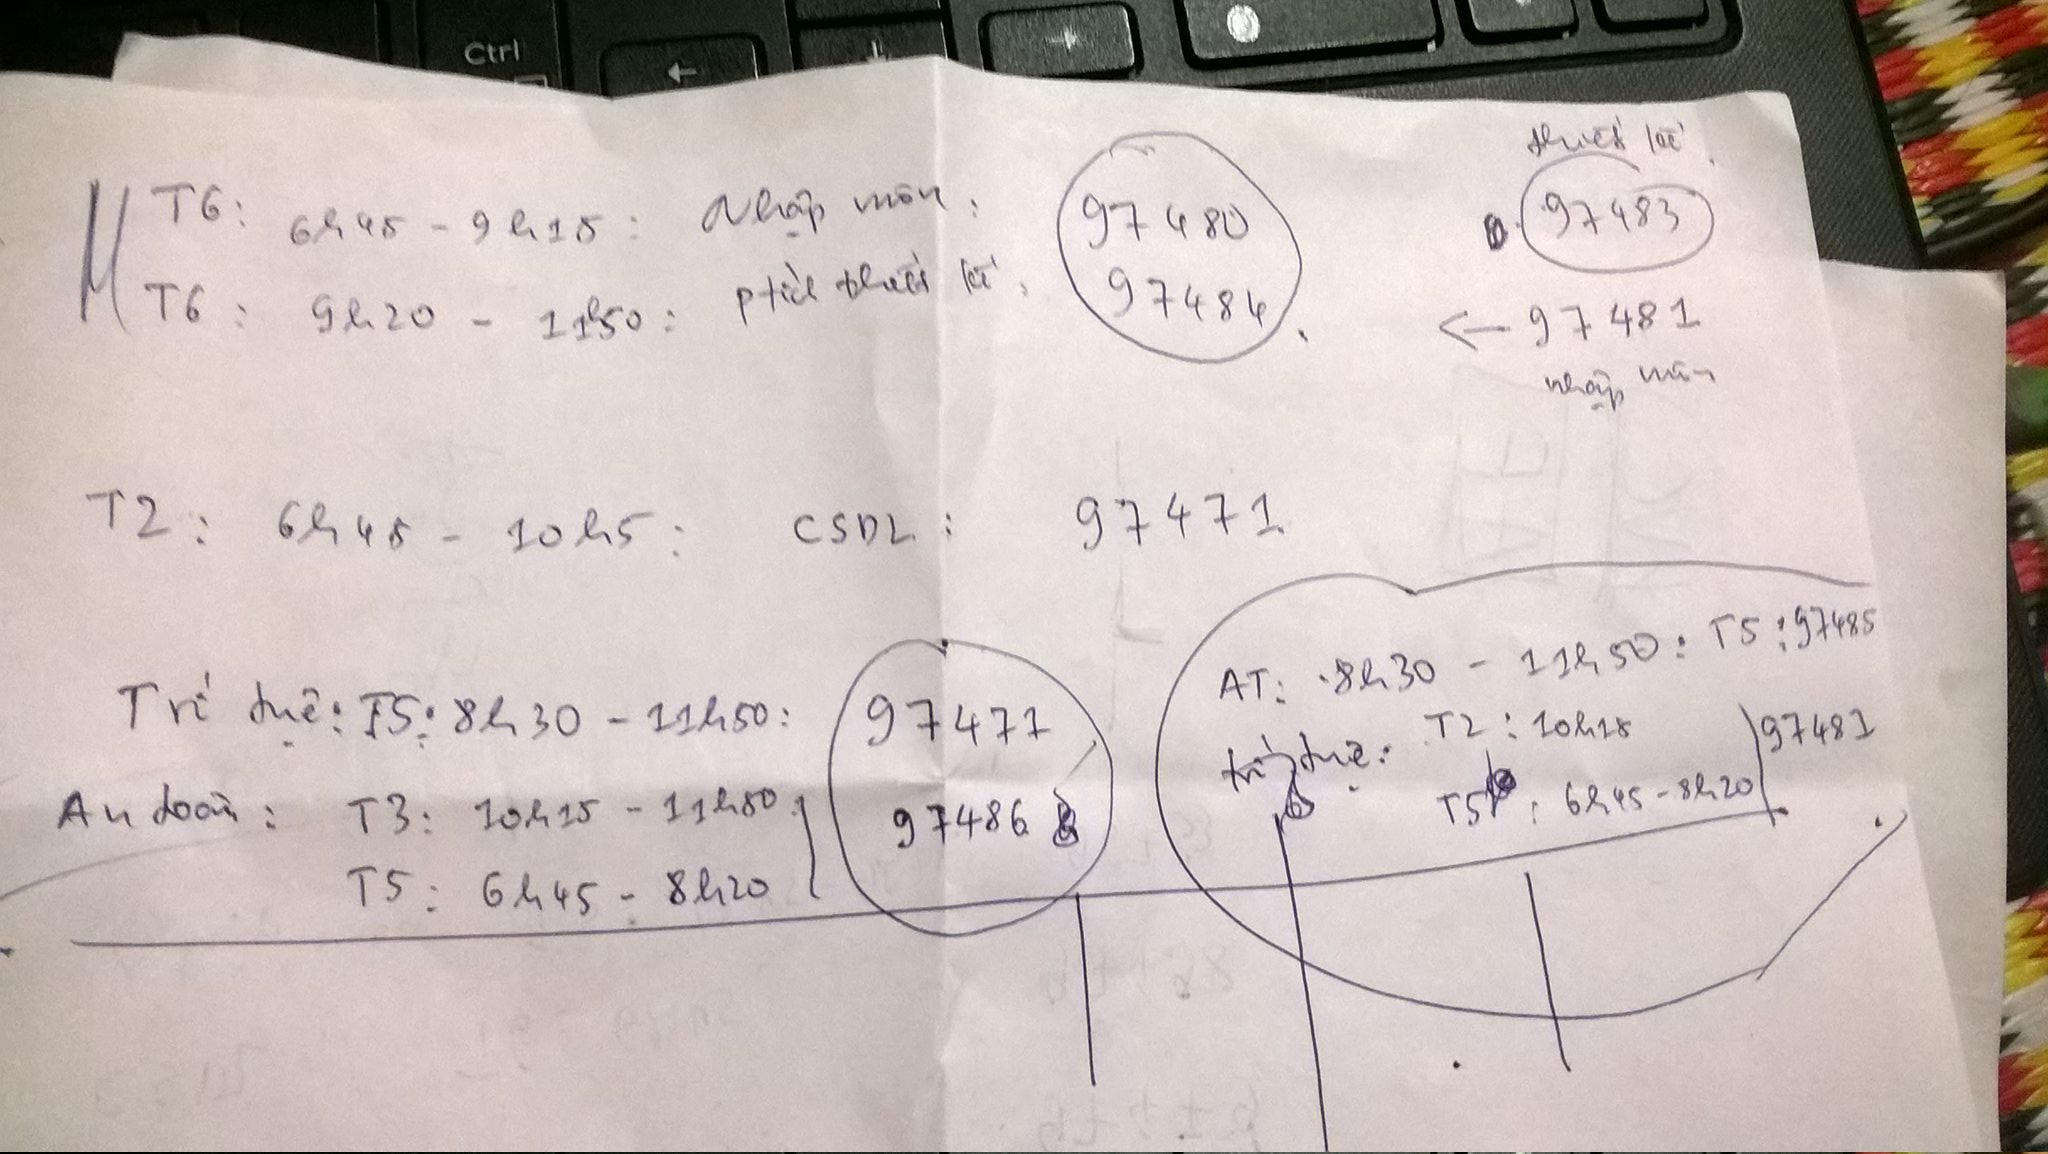 Ctrl
T6: 6h45 - 9h15: Nhập môn: 97480
T6: 9h20 - 11h50: ptích thiết kế: 97484
thiết kế
97483
← 97481
nhập môn
T2: 6h45 - 10h5: CSDL: 97471
Trí tuệ: T5: 8h30 - 11h50: 97477
An toàn: T3: 10h15 - 11h50 97486
T5: 6h45 - 8h20
AT: 8h30 - 11h50: T5: 97485
trí tuệ: T2: 10h15 97481
T5: 6h45 - 8h20